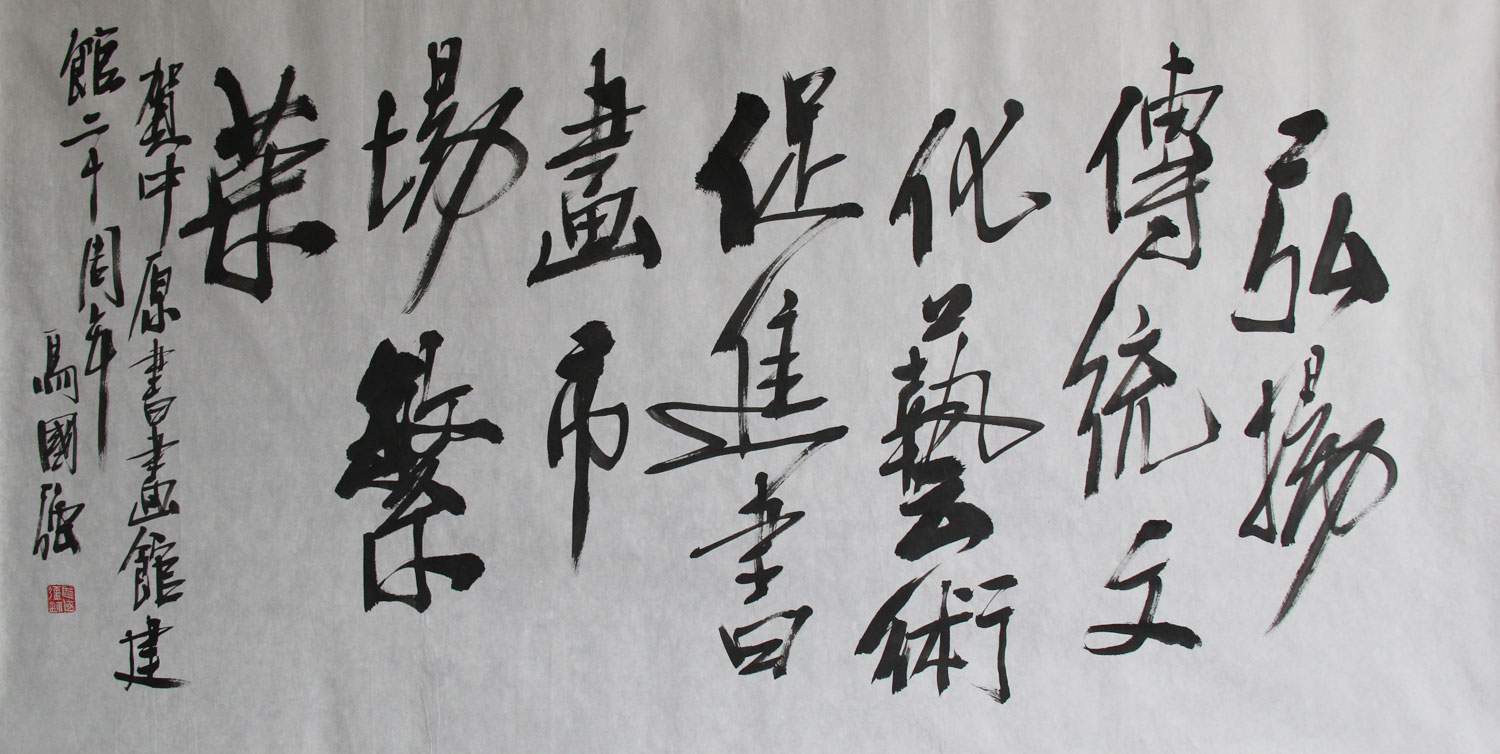 弘揚
傳統文
化藝術
促進書
畫市
場繁
荣
賀中原書畫館建
館二十周年
馬國強